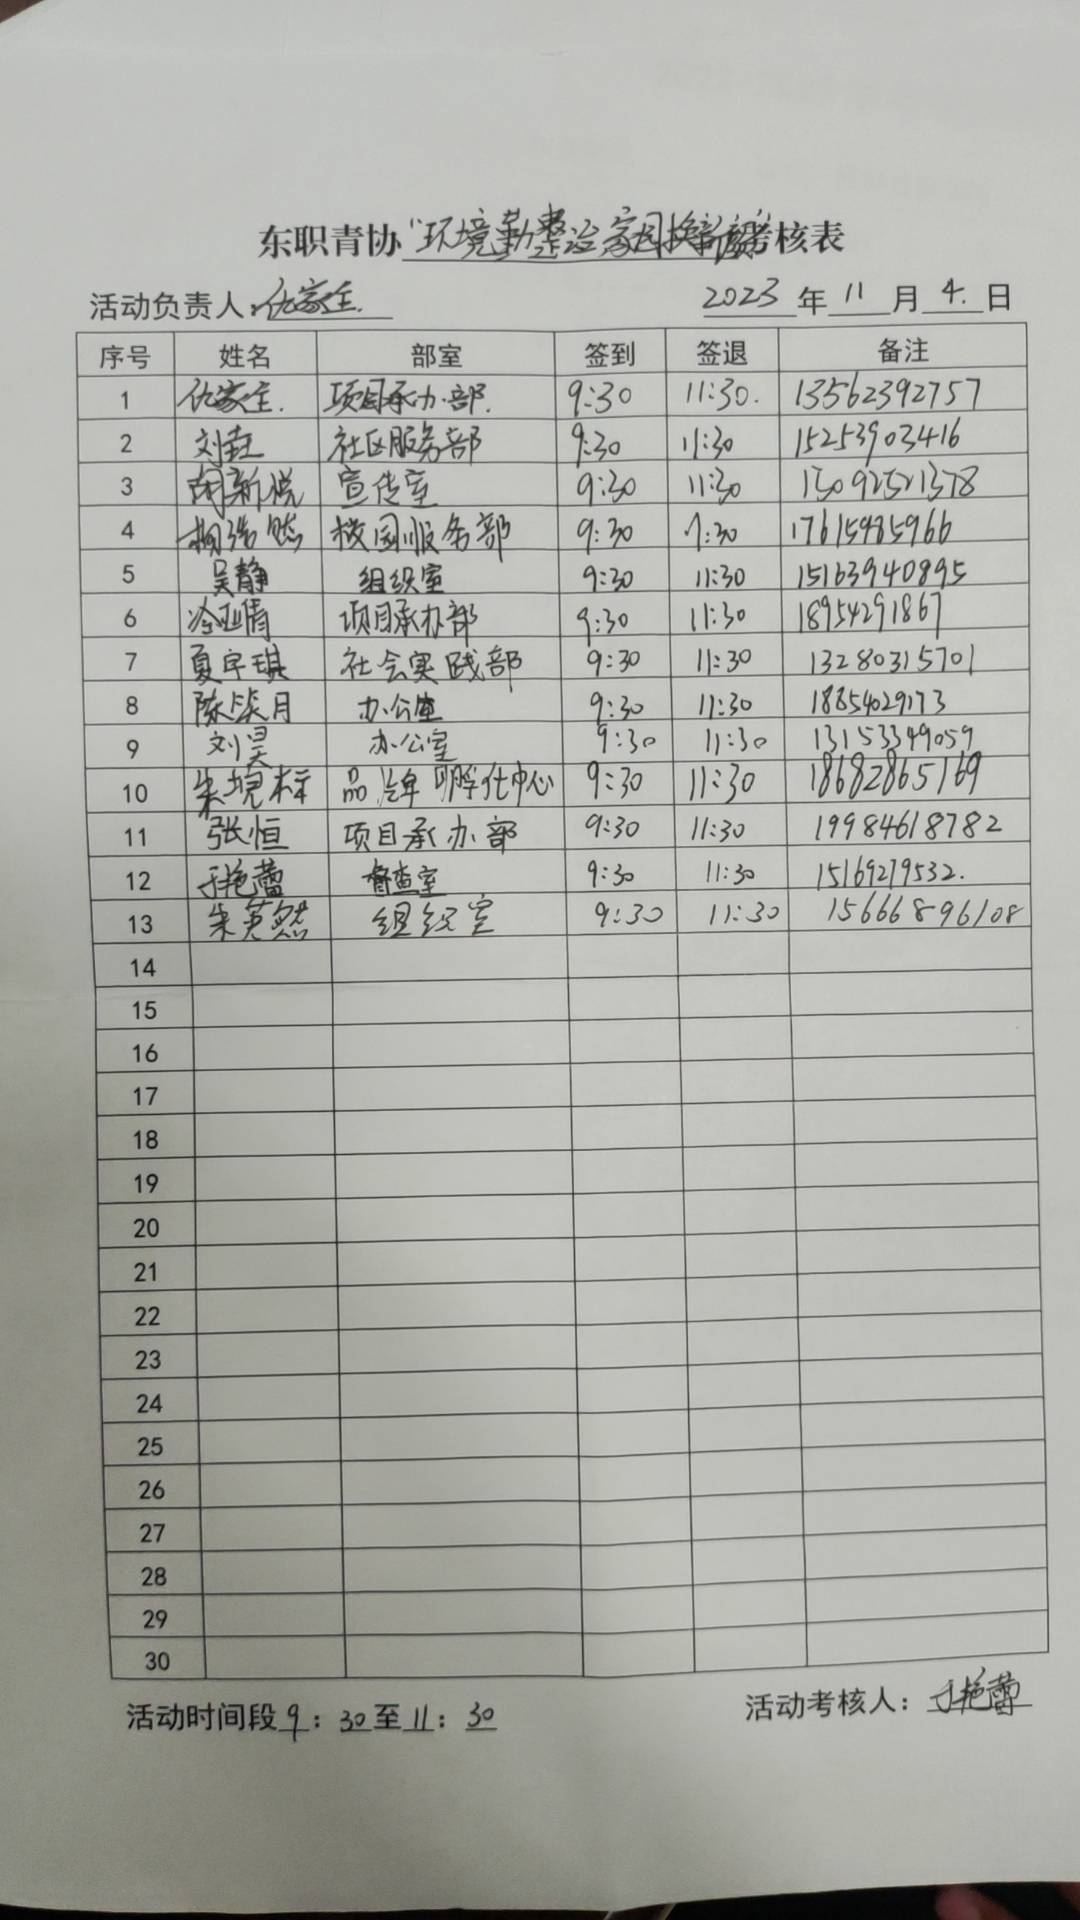 东职青协“环境勤整治 家园换新颜”考核表
活动负责人：仇家全 2023年11月4日
序号 姓名 部室 签到 签退 备注
1 仇家全 项目承办部 9:30 11:30 13562392757
2 社区服务部 9:30 11:30 15253903416
3 新悦 宣传室 9:30 11:30 15092521378
4 浩然 校园服务部 9:30 11:30 17615485966
5 吴静 组织室 9:30 11:30 15163940895
6 冷亚倩 项目承办部 9:30 11:30 18954291867
7 夏宇琪 社会实践部 9:30 11:30 13280315701
8 陈 月 办公室 9:30 11:30 18854029173
9 刘昊 办公室 9:30 11:30 13153349059
10 朱 标 品牌孵化中心 9:30 11:30 18682865169
11 张恒 项目承办部 9:30 11:30 19984618782
12 于艳蕾 督查室 9:30 11:30 15169279532
13 朱英然 组织室 9:30 11:30 15666896108
14
15
16
17
18
19
20
21
22
23
24
25
26
27
28
29
30
活动时间段9：30至11：30 活动考核人：于艳蕾